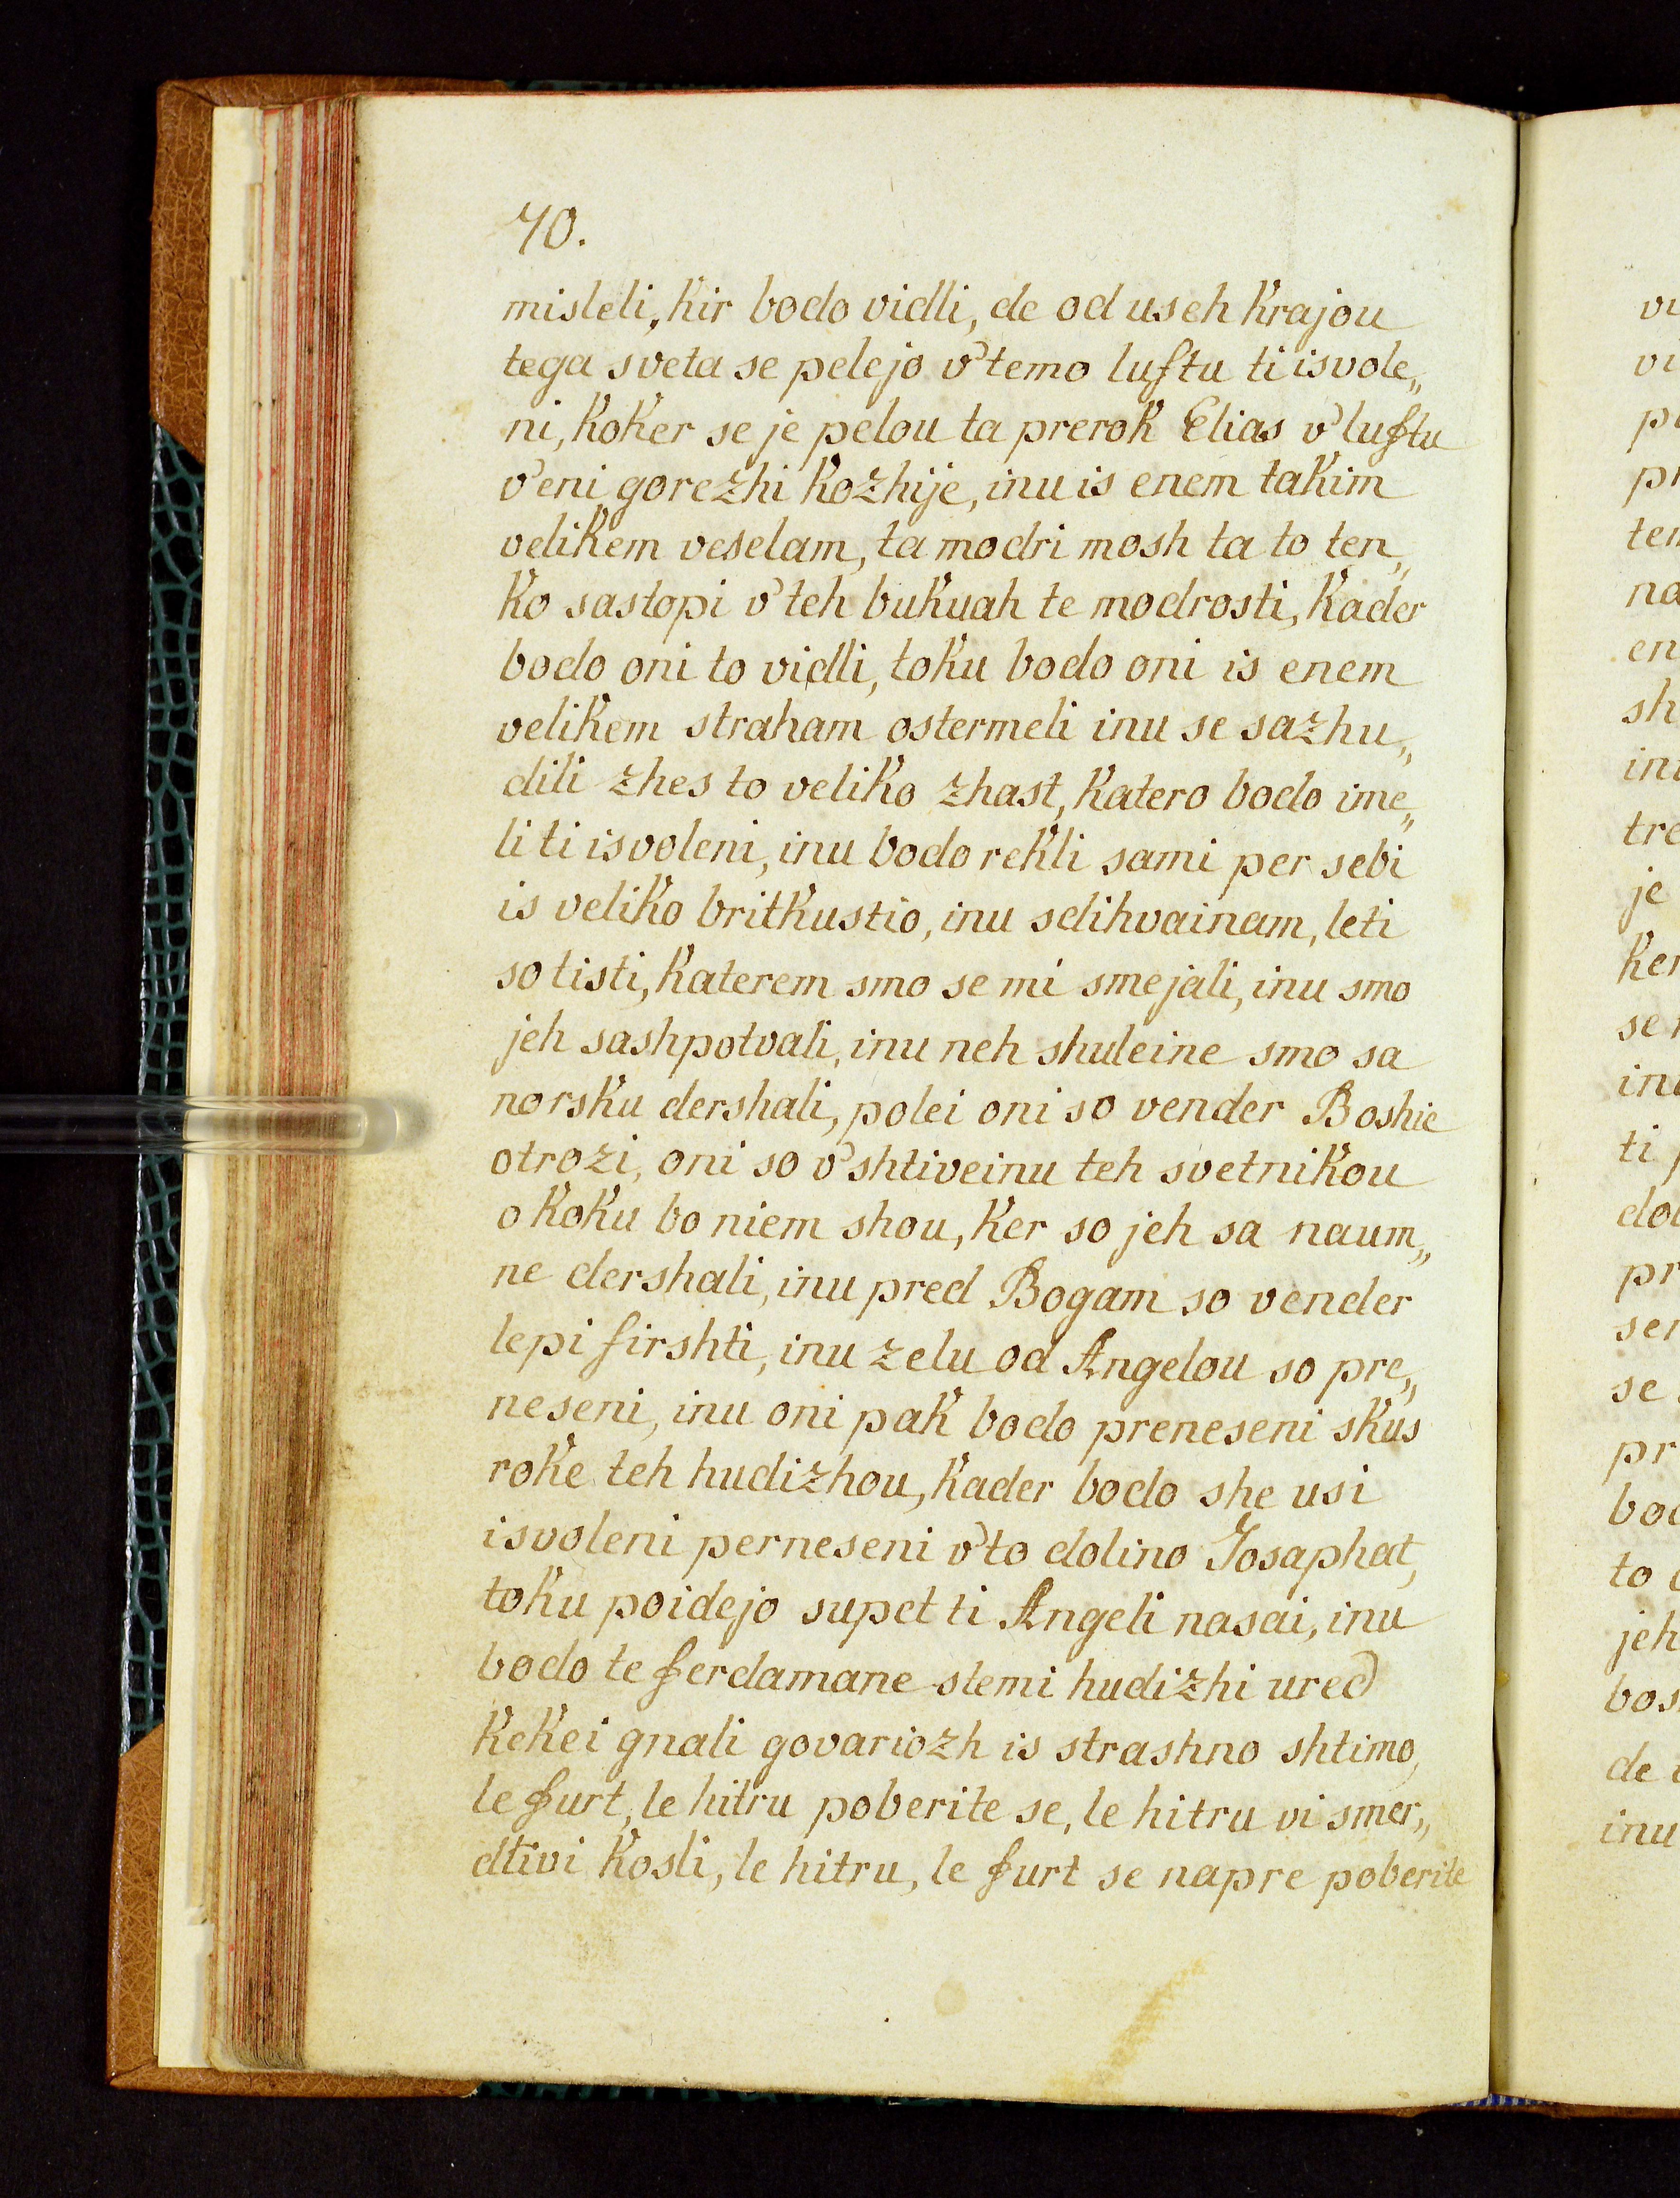 70.
misleli, kir bodo vidli, de od useh krajou
tega sveta se pelejo v'temo luftu ti isvole„
ni, koker se je pelou ta prerok Elias v'luftu
v'eni gorezhi kozhije, inu is enem takim
velikem veselam, ta modri mosh ta to ten„
ko sastopi v'teh bukuah te modrosti, kader
bodo oni to vidli, toku bodo oni is enem
velikem straham ostermeli inu se sazhu„
dili zhes to veliko zhast, katero bodo ime„
li ti isvoleni, inu bodo rekli sami per sebi
is veliko britkustio, inu sdihvainam, leti
so tisti, katerem smo se mi smejali, inu smo
jeh sashpotvali, inu neh shuleine smo sa
norsku dershali, polei oni so vender Boshie
otrozi, oni so v'shtiveinu teh svetnikou
o koku bo niem shou, ker so jeh sa naum„
ne dershali, inu pred Bogam so vender
lepi firshti, inu zelu od Angelou so pre„
neseni, inu oni pak bodo preneseni skus
roke teh hudizhou, kader bodo she usi
isvoleni perneseni v'to dolino Josaphat,
toku poidejo supet ti Angeli nasai, inu
bodo te ferdamane stemi hudizhi ured
kekei gnali govariozh is strashno shtimo,
le furt, le hitru poberite se, le hitru vi smer„
dlivi kosli, le hitru, le furt se napre poberite
vi
vi
pr
ten
na
en
sh
inu
tre
je
ker
se
ti
dol
pr
ser
se
pr
bod
to
jeh
bos
de
inu